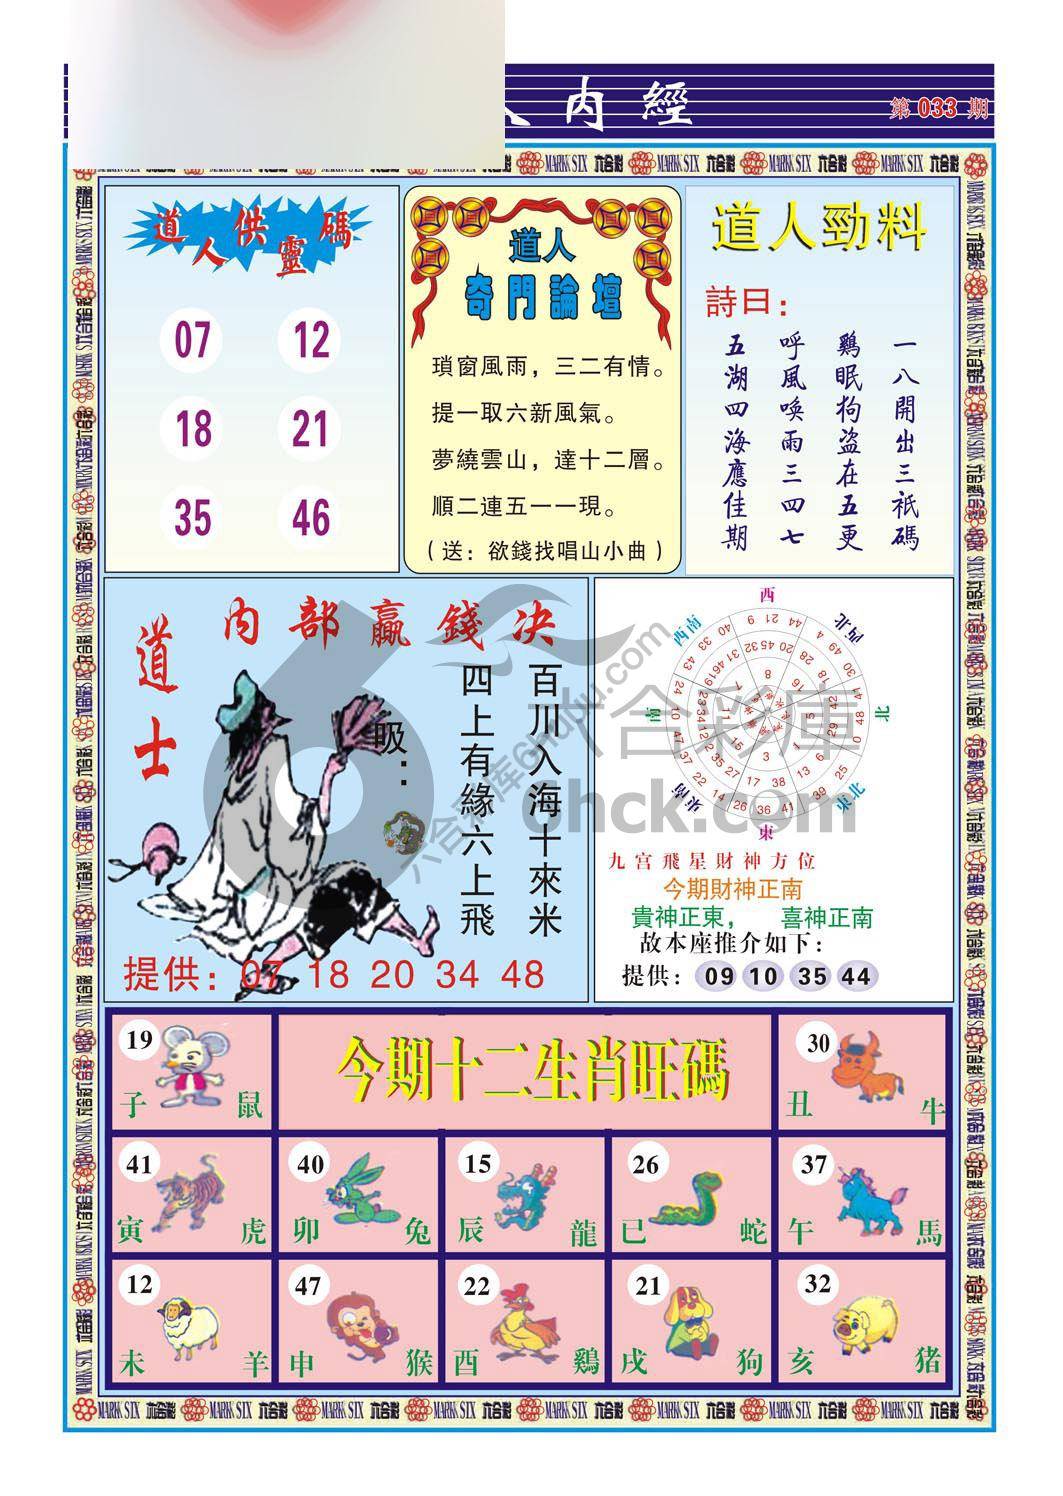 內經
第 033 期
道人供靈碼
07 12
18 21
35 46
道人
奇門論壇
瑣窗風雨，三二有情。
提一取六新風氣。
夢繞雲山，達十二層。
順二連五一一現。
（送：欲錢找唱山小曲）
道人勁料
詩曰：
一八開出三祇碼
鷄眠狗盜在五更
呼風喚雨三四七
五湖四海應佳期
道士內部贏錢決
吸：
百川入海十來米
四上有緣六上飛
提供：07 18 20 34 48
西
西北
北
東北
東
東南
南
西南
九宫飛星財神方位
今期財神正南
貴神正東， 喜神正南
故本座推介如下：
提供：09 10 35 44
六合彩庫
6hck.com
今期十二生肖旺碼
19 子 鼠
30 丑 牛
41 寅 虎
40 卯 兔
15 辰 龍
26 巳 蛇
37 午 馬
12 未 羊
47 申 猴
22 酉 鷄
21 戌 狗
32 亥 猪
MARK SIX 六合彩